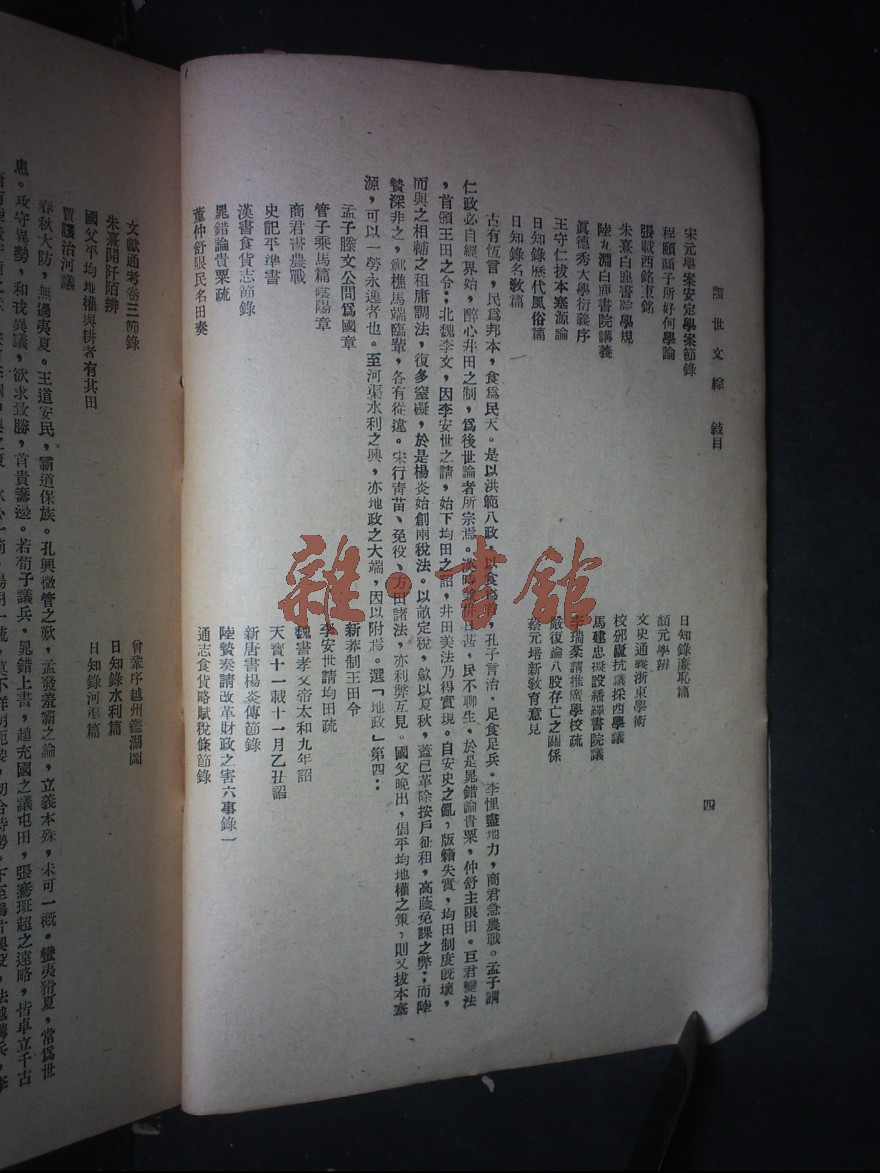 世文綜　敍目
四
宋元學案安定學案節錄
程頤顏子所好何學論
張載西銘東銘
朱熹白鹿書院學規
陸九淵白鹿書院講義
眞德秀大學衍義序
王守仁拔本塞源論
日知錄歷代風俗篇
日知錄名敎篇
日知錄廉恥篇
顏元學辨
文史通義浙東學術
校邠廬抗議採西學議
馬建忠擬設繙譯書院議
李瑞棻請推廣學校疏
嚴復論八股存亡之關係
蔡元培新敎育意見
古有恆言，民爲邦本，食爲民天。是以洪範八政，以食爲首，孔子言治，足食足兵。李悝盡地力，商君急農戰。孟子謂
仁政必自經界始，醉心井田之制，爲後世論者所宗焉。漢時民不聊生，於是晁錯論貴粟，仲舒主限田。巨君變法
，首頒王田之令；北魏孝文，因李安世之請，始下均田之詔，井田美法乃得實現。自安史之亂，版籍失實，均田制度旣壞，
而與之相輔之租庸調法，復多窒礙，於是楊炎始創兩稅法。以畝定稅，歛以夏秋，蓋已革除按戶征租，高蔭免課之弊；而陸
贄深非之，鄭樵馬端臨輩，各有從違。宋行靑苗、免役、方田諸法，亦利弊互見。國父晚出，倡平均地權之策，則又拔本塞
源，可以一勞永逸者也。至河渠水利之興，亦地政之大端，因以附焉。選「地政」第四：
孟子滕文公問爲國章
管子乘馬篇陰陽章
商君書農戰
史記平準書
漢書食貨志節錄
晁錯論貴粟疏
董仲舒限民名田奏
新莽制王田令
李安世請均田疏
魏書孝文帝太和九年詔
天寶十一載十一月乙丑詔
新唐書楊炎傳節錄
陸贄奏請改革財政之害六事錄一
通志食貨略賦稅條節錄
文獻通考卷三節錄
朱熹開阡陌辨
國父平均地權與耕者有其田
賈讓治河議
曾鞏序越州鑑湖圖
日知錄水利篇
日知錄河渠篇
春秋大防，無過夷夏。王道安民，霸道保族。孔興微管之歎，孟發羞霸之論，立義本殊，未可一槪。蠻夷猾夏，常爲世
患。攻守異勢，和戎異議，欲求致勝，首貴籌邊。若荀子議兵，晁錯上書，趙充國之議屯田，張騫班超之遠略，皆卓立千古
雜·書館